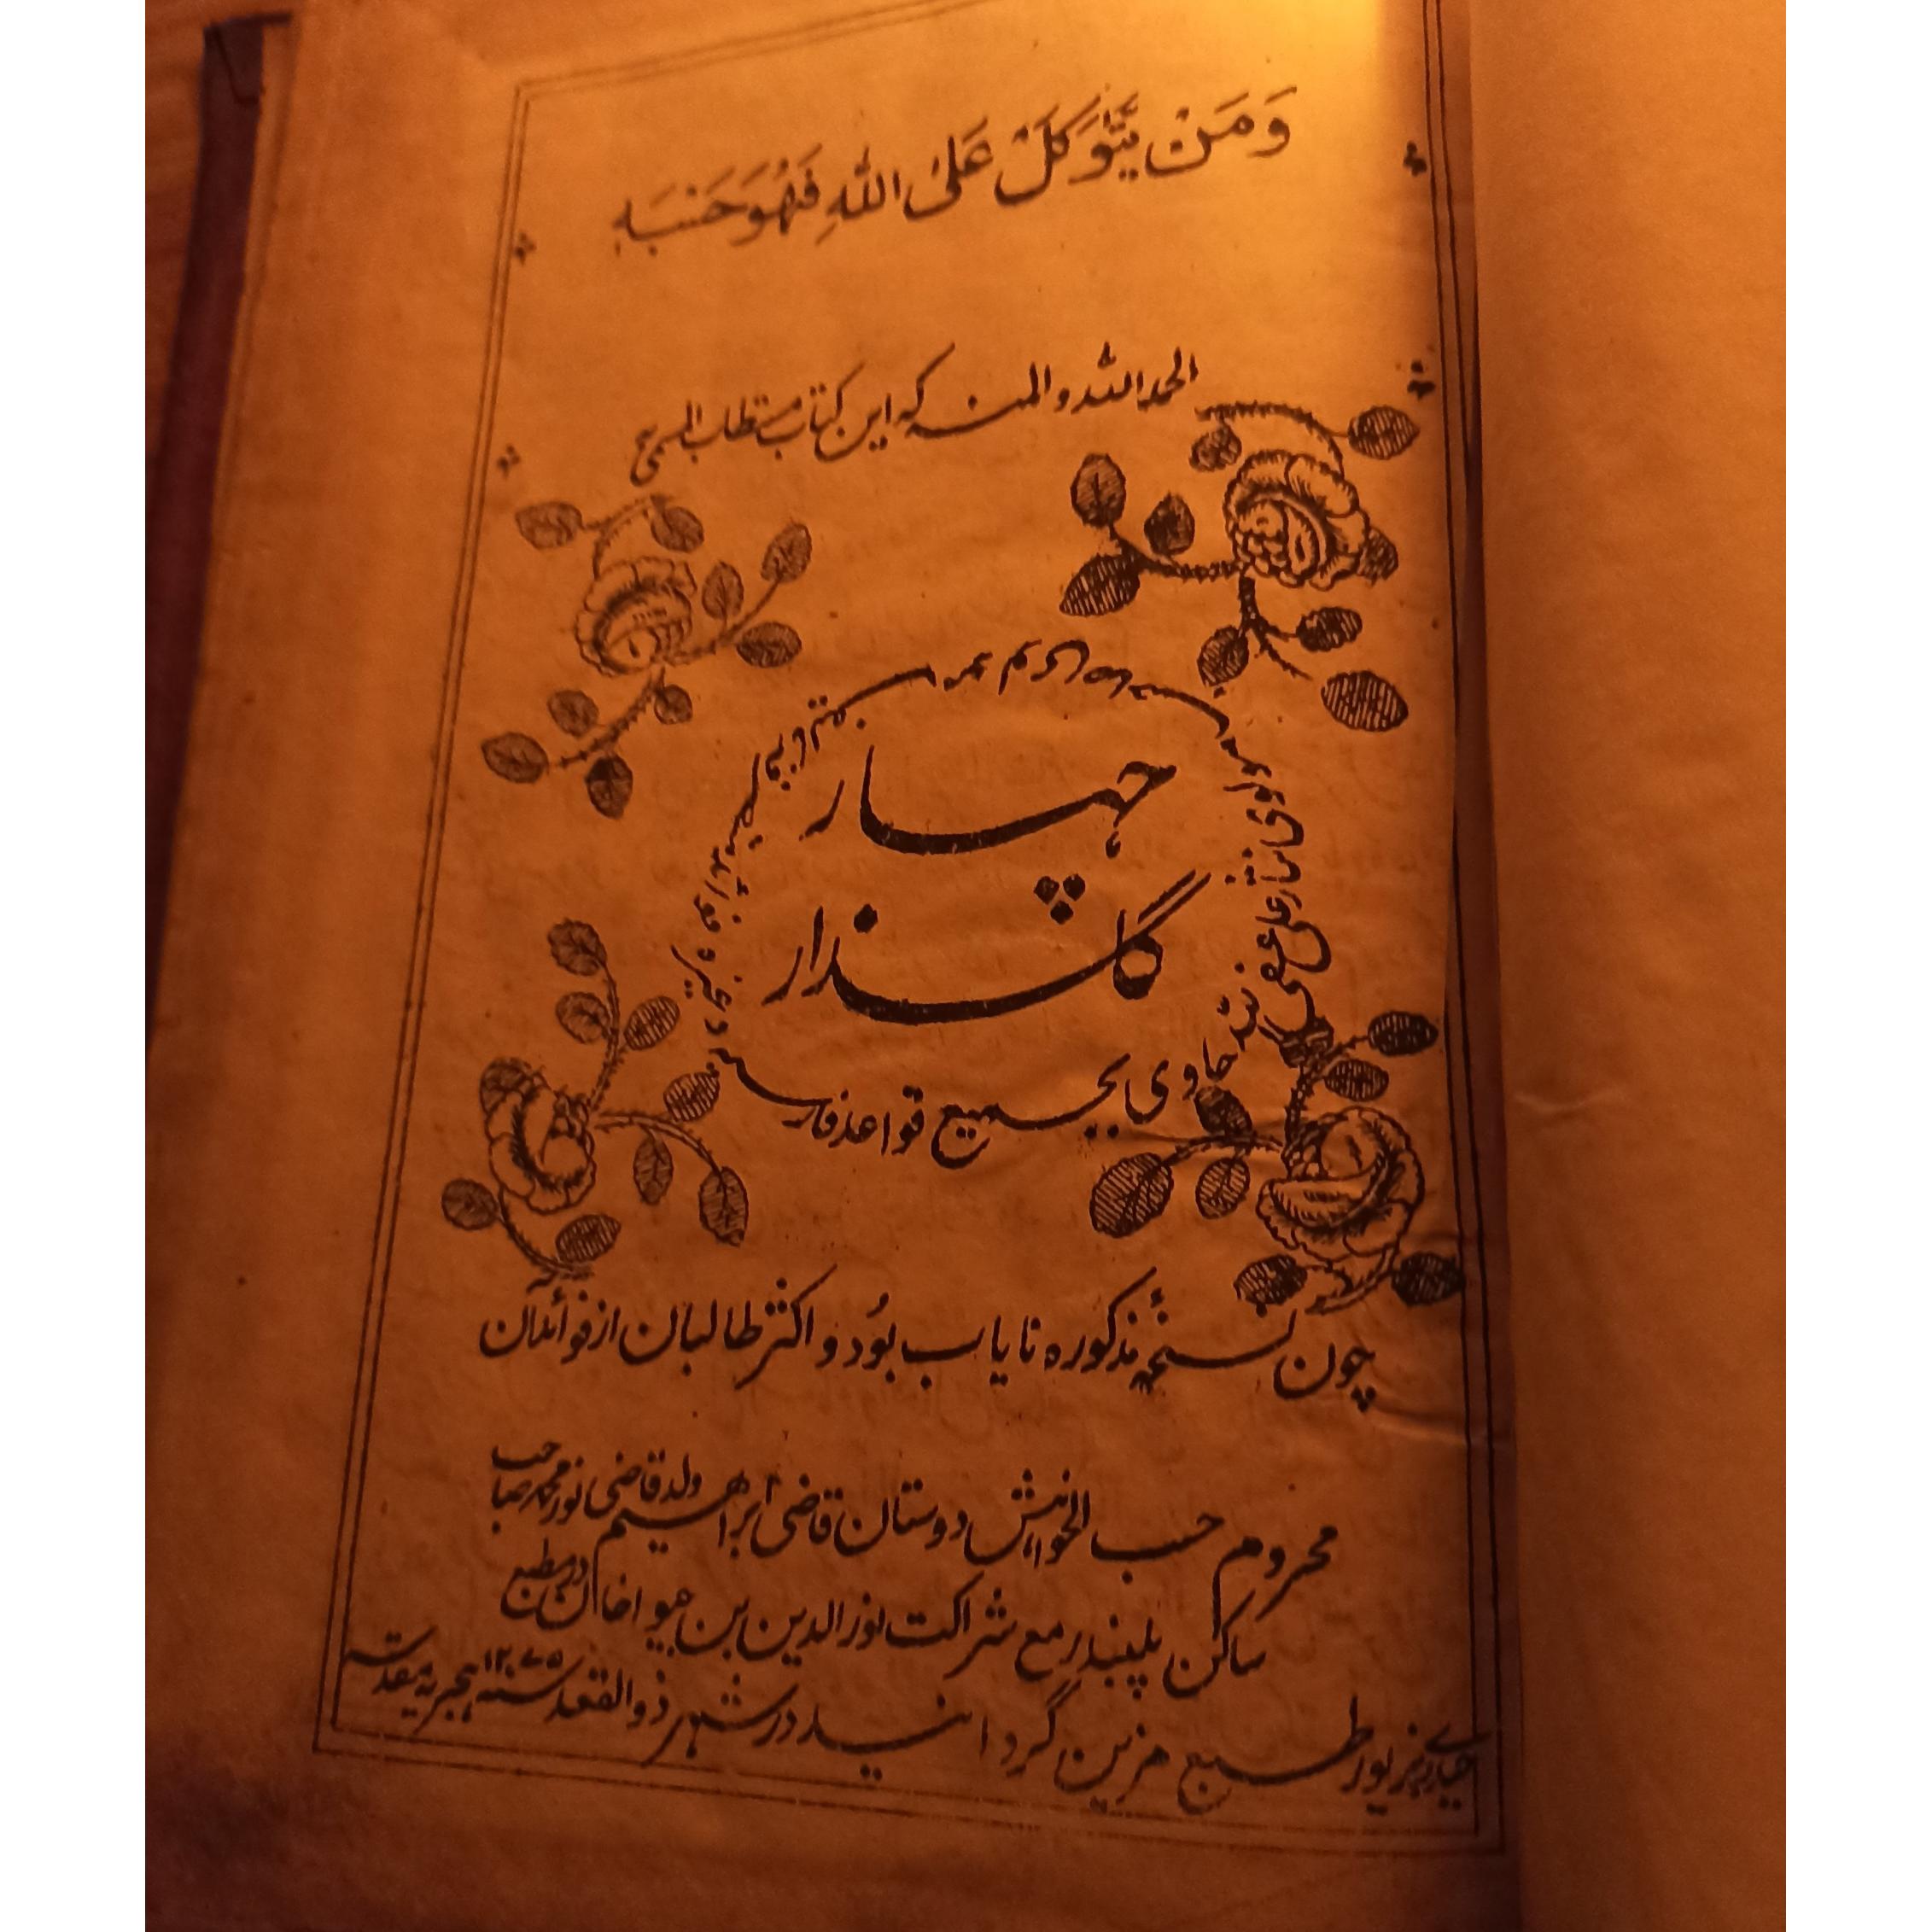 وَمَنْ يَّتَوَكَّلْ عَلَى اللّٰهِ فَهُوَ حَسْبَهٗ
الحمد للّٰه والمنه که این کتاب مستطاب المسمی
چهار
گلذار
حاوی بجمیع قواعد فارسی
چون نسخهٔ مذکوره نایاب بُود و اکثر طالبان از فوائد آن
محروم حسب الخواهش دوستان قاضی ابراهیم ولد قاضی نور محمد صاحب
ساکن پلبندر مع شراکت نورالدین بن جیواخان در مطبع
حیدری بزیور طبع مزین گردانید در شهر ذوالقعد سنه ۱۲۷۵ هجریه مقدسه